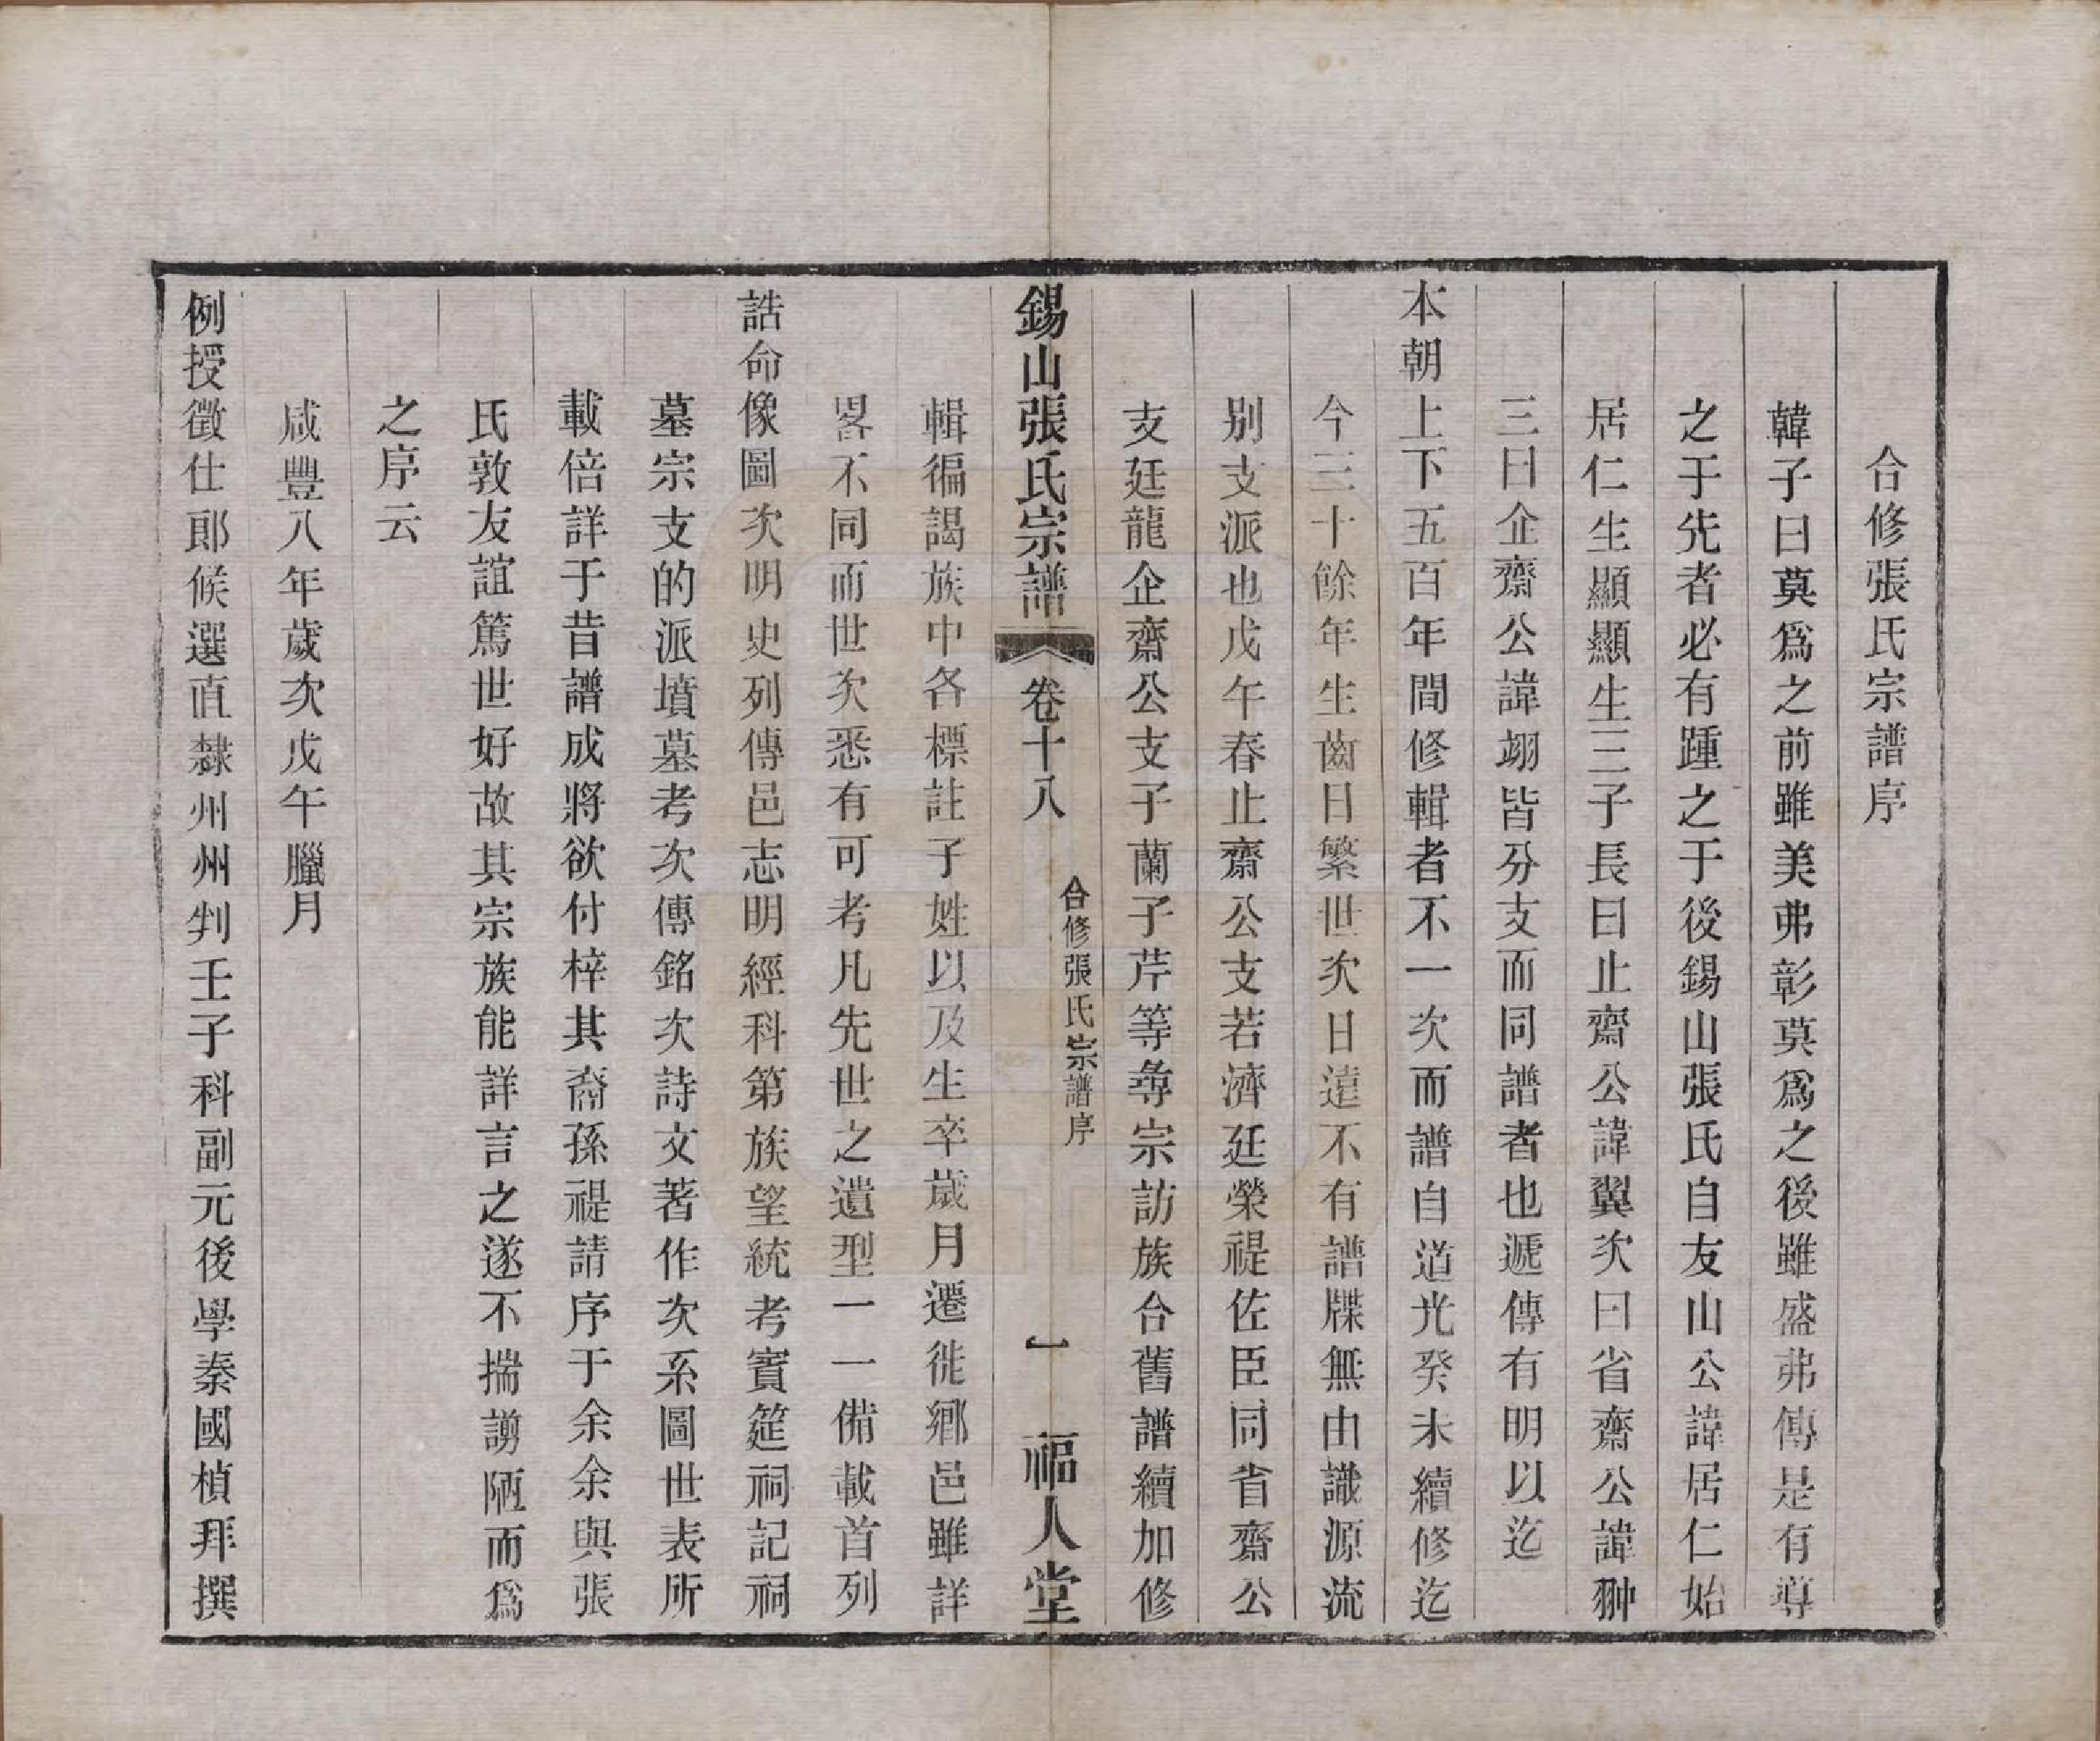 合修張氏宗譜序
韓子曰莫爲之前雖美弗彰莫爲之後雖盛弗傳是有導
之于先者必有踵之于後錫山張氏自友山公諱居仁始
居仁生顯顯生三子長曰止齋公諱翼次曰省齋公諱翀
三曰企齋公諱翊皆分支而同譜者也遞傳有明以迄
本朝上下五百年間修輯者不一次而譜自道光癸未續修迄
今三十餘年生齒日繁世次日遠不有譜牒無由識源流
别支派也戊午春止齋公支若濟廷榮禔佐臣同省齋公
支廷龍企齋公支子蘭子芹等尋宗訪族合舊譜續加修
錫山張氏宗譜 卷十八 合修張氏宗譜序 一 福人堂
輯徧謁族中各標註子姓以及生卒歲月遷徙鄉邑雖詳
畧不同而世次悉有可考凡先世之遺型一一備載首列
誥命像圖次明史列傳邑志明經科第族望統考賓筵祠記祠
墓宗支的派墳墓考次傳銘次詩文著作次系圖世表所
載倍詳于昔譜成將欲付梓其裔孫禔請序于余余與張
氏敦友誼篤世好故其宗族能詳言之遂不揣謭陋而爲
之序云
咸豐八年歲次戊午臘月
例授徵仕郎候選直隸州州判壬子科副元後學秦國楨拜撰